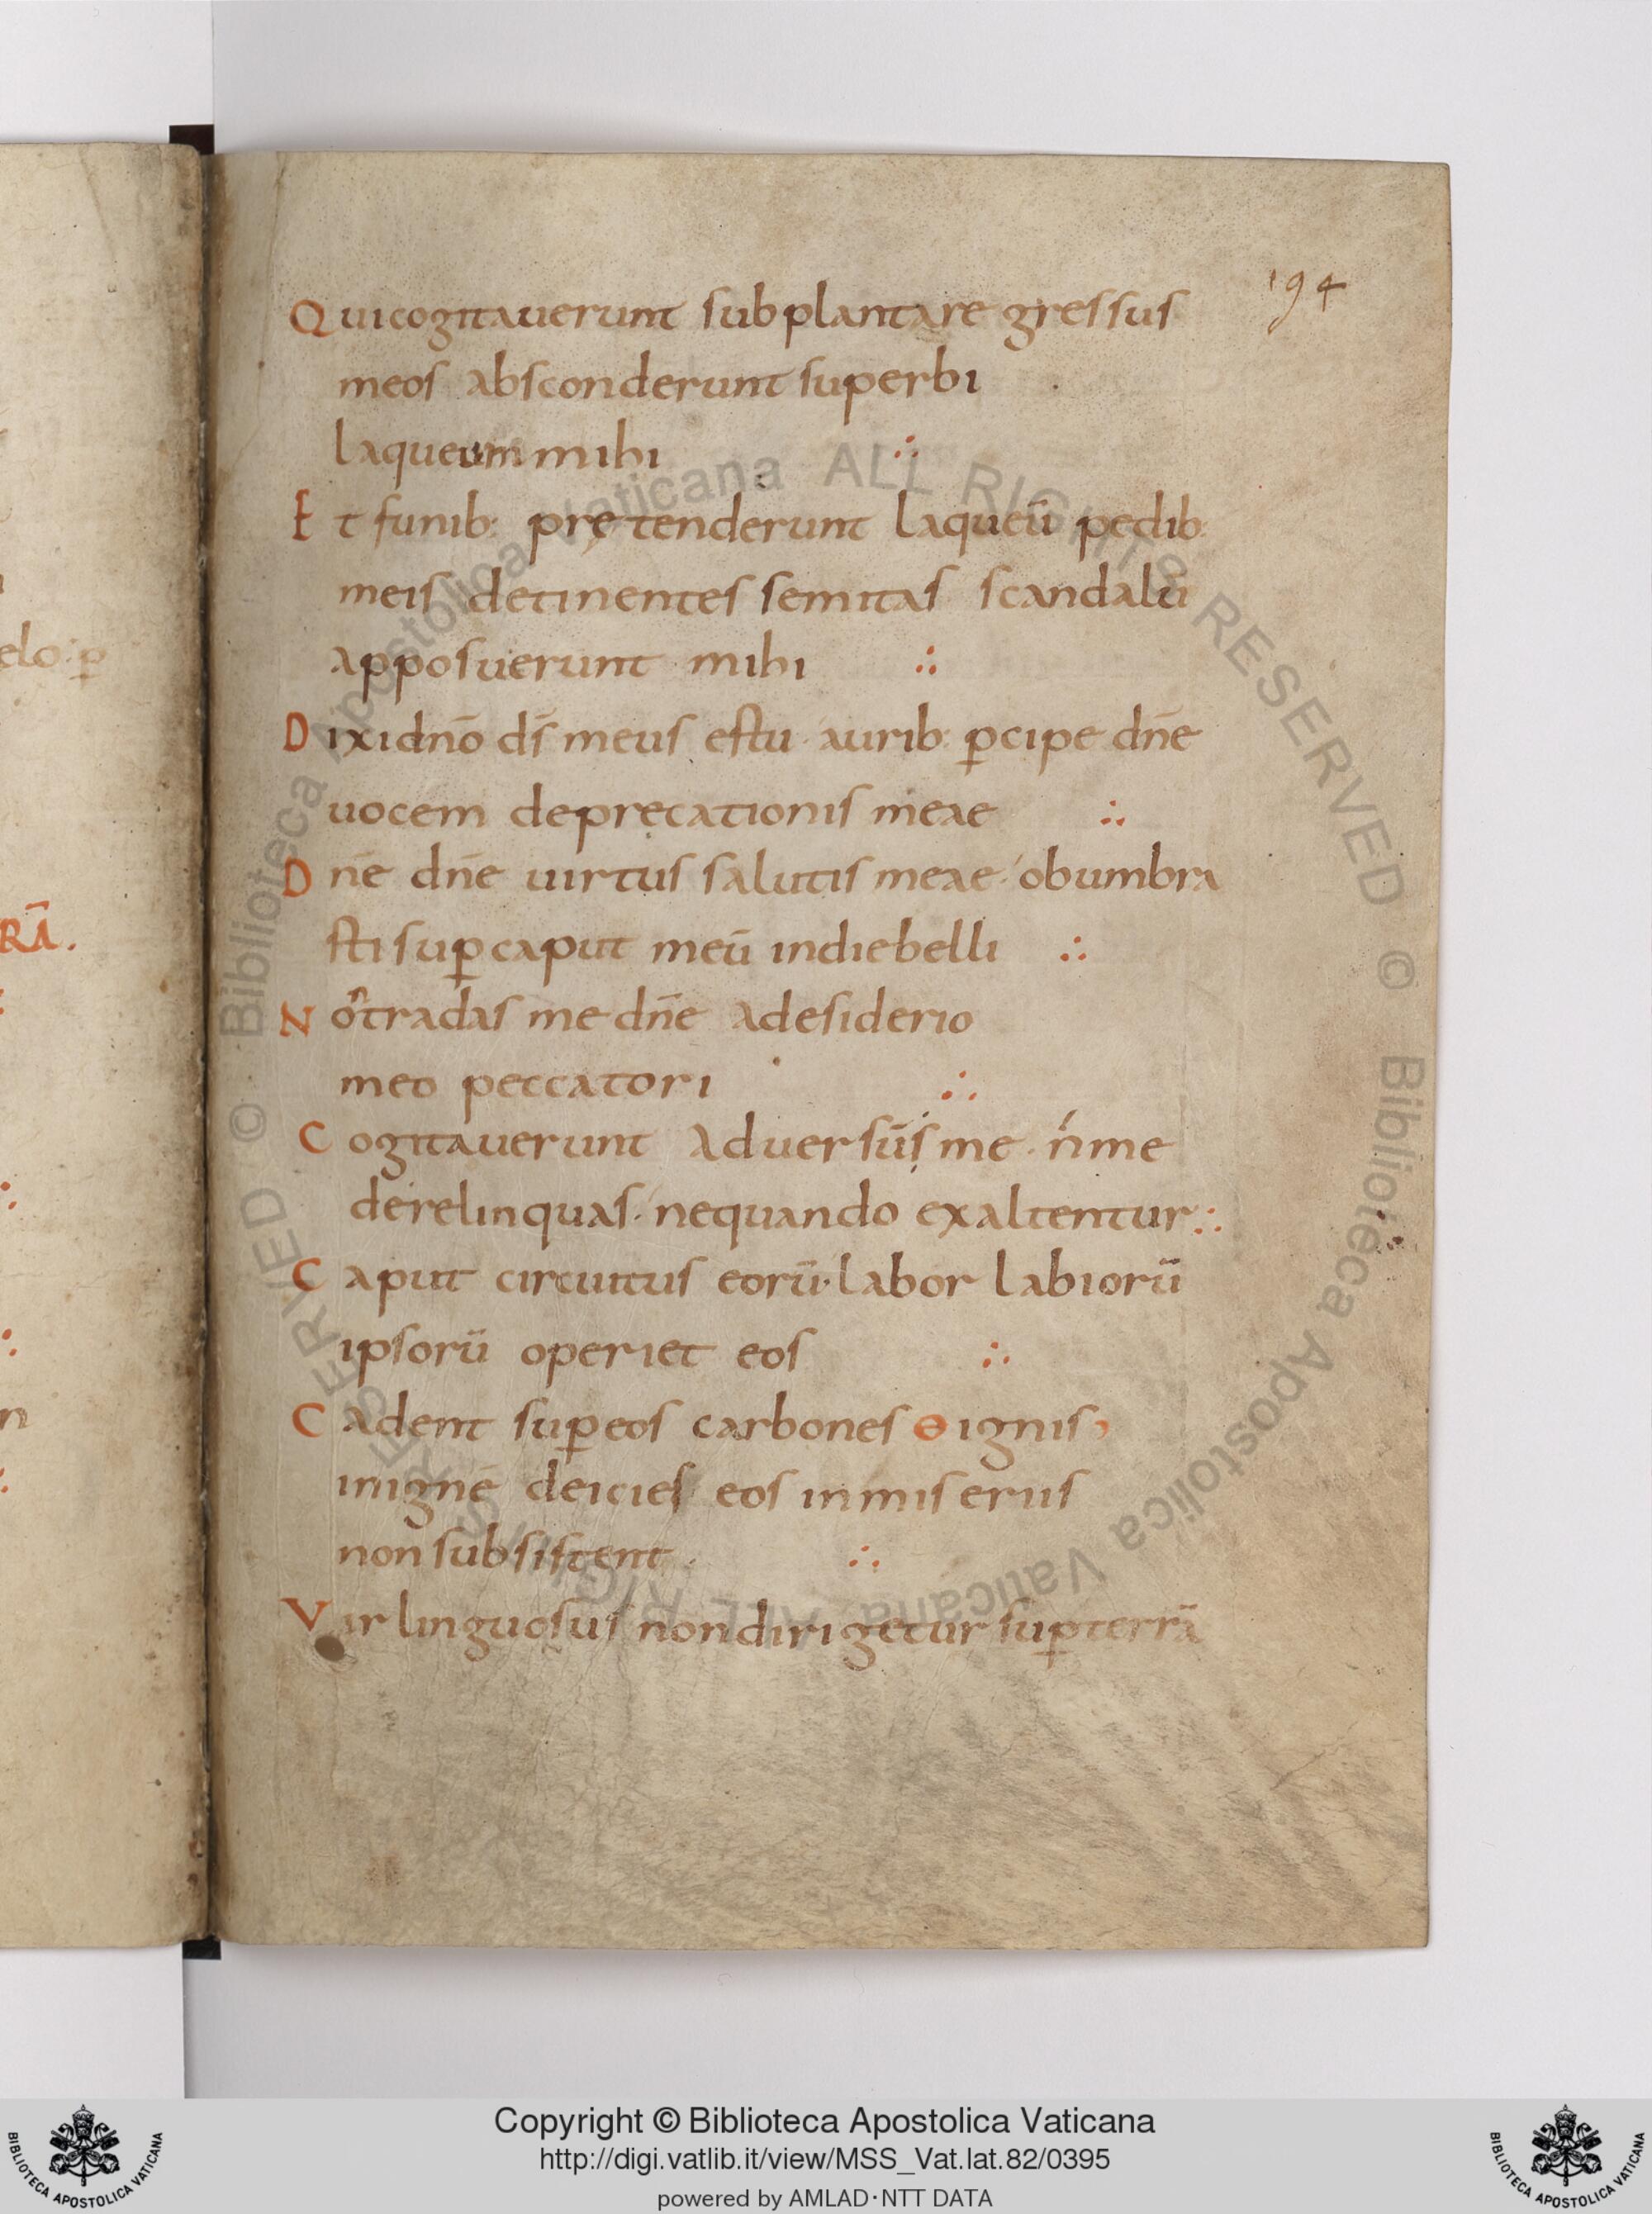 194
Qui cogitauerunt subplantare gressus
meos absconderunt superbi
laqueum mihi ∴
Et funib: prętenderunt laqueū pedib:
meis detinentes semitas scandalū
apposuerunt mihi ∴
Dixi dnō ds̄ meus es tu aurib: ꝑcipe dnē
uocem depręcationis meae ∴
Dnē dnē uirtus salutis meae · obumbra
sti suꝑ caput meū in die belli ∴
No tradas me dnē a desiderio
meo peccatori ∴
Cogitauerunt aduersūs me · n̄ me
derelinquas · ne quando exaltentur ∴
Caput circuitus eorū · labor labiorū
ipsorū operiet eos ∴
Cadent suꝑ eos carbones ignis
in igne deicies eos in miseriis
non subsistent · ∴
Vir linguosus non dirigetur suꝑ terrā
elo: ꝑ
RĀ.
n
© Biblioteca Apostolica Vaticana ALL RIGHTS RESERVED © Biblioteca Apostolica Vaticana ALL RIGHTS RESERVED
BIBLIOTECA APOSTOLICA VATICANA
Copyright © Biblioteca Apostolica Vaticana
http://digi.vatlib.it/view/MSS_Vat.lat.82/0395
powered by AMLAD·NTT DATA
BIBLIOTECA APOSTOLICA VATICANA